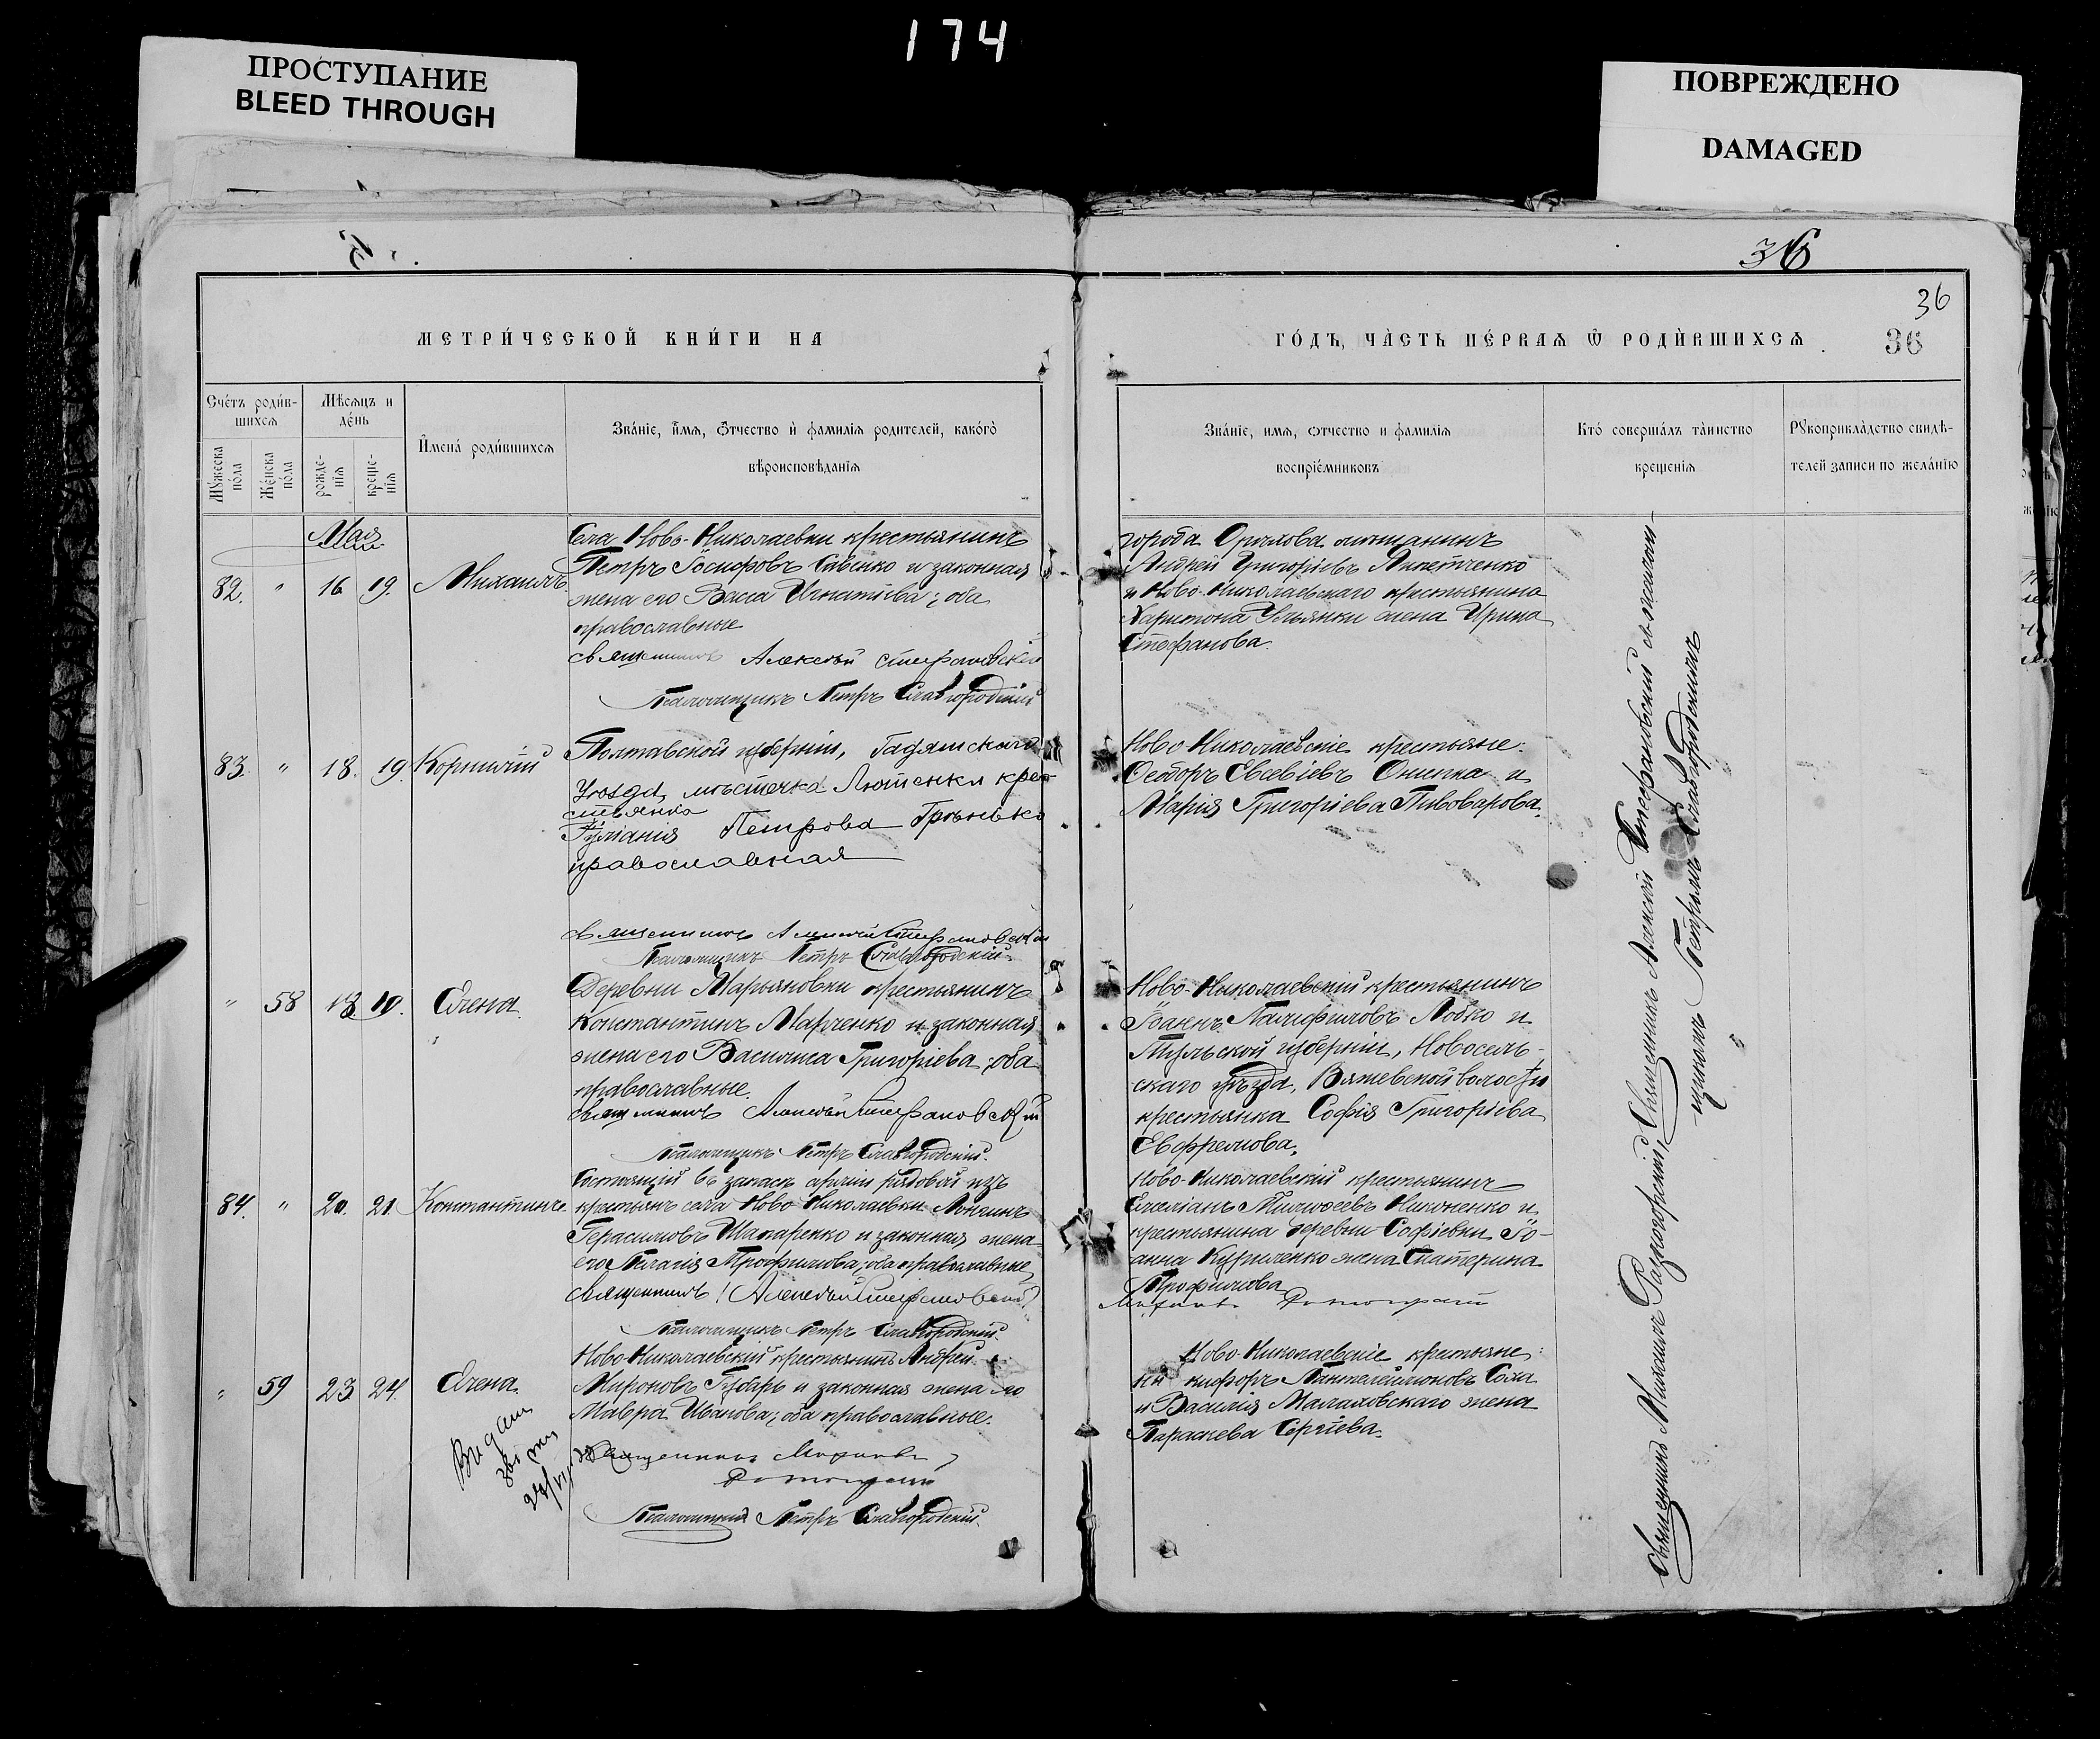 174
ПРОСТУПАНИЕ
BLEED THROUGH
ПОВРЕЖДЕНО
DAMAGED
36
36
МЕТРИ́ЧЕСКОЙ КНИ́ГИ НА
ГО́ДЪ, ЧА̀СТЬ ПЕ́РВАѦ Ѿ РОДЍВШИХСѦ
36
Сче́тъ роди́в-
шихсѧ
Мѣ́сѧцъ и
де́нь
Мꙋ́жеска
по́ла
Же́нска
по́ла
рожде-
нїѧ
креще-
нїѧ
И҆мена́ роди́вшихсѧ
Зва́нїе, и҆́мѧ, ѻ҆́тчество и҆ фами́лїѧ родителей, како́гѡ
вѣроисповѣ́данїѧ
Зва́нїе, имѧ, ѻтчество и фами́лїѧ
воспрїе́мниковъ
Кто́ соверша́лъ та̀инство
креще́нїѧ
Рꙋкоприкла̀дство свидѣ́-
телей записи по жела́нїю
Мая
82. " 16 19. Михаилъ
Села Ново-Николаевки крестьянинъ
Петръ Іосифовъ Савенко и законная
жена его Васса Игнатіева; оба
православные
Священникъ Алексѣй Стефановскій
Псаломщикъ Петръ Славгородскій
города Орѣхова мѣщанинъ
Андрей Григоріевъ
и Ново-Николаевскаго крестьянина
Харитона Ульянки жена Ирина
Стефанова.
83. " 18. 19. Корнилій
Полтавской губерніи, Гадячскаго
Уѣзда, мѣстечка Лютенки кре-
стьянка
Іуліанія Петрова
православная
Священникъ Алексѣй Стефановскій
Псаломщикъ Петръ Славгородскій
Ново-Николаевскіе крестьяне:
Ѳеодоръ Евсевіевъ Онипка и
Марія Григоріева Пивоварова.
" 58 18 19. Елена.
Деревни Марьяновки крестьянинъ
Константинъ Марченко и законная
жена его Василиса Григоріева; оба
православные.
Священникъ Алексѣй Стефановскій
Псаломщикъ Петръ Славгородскій.
Ново-Николаевскій крестьянинъ
Іоаннъ Памфиловъ Лобко и
Тульской губерніи, Новосель-
скаго уѣзда, Вяжевской волости
крестьянка Софія Григоріева
Евфремова.
84. " 20. 21. Константинъ.
Состоящій въ запасѣ арміи рядовой изъ
крестьянъ села Ново-Николаевки Лонгинъ
Герасимовъ Шапаренко и законная жена
его Пелагія Трофимова; оба православные
Священникъ Алексѣй Стефановскій
Псаломщикъ Петръ Славгородскій.
Ново-Николаевскій крестьянинъ
Емеліанъ Тимоѳеевъ Никоненко и
крестьянина деревни Софіевки Іо-
анна Куриленко жена Екатерина
Трофимова
" 59 23 24. Елена.
Ново-Николаевскій крестьянинъ Андрей
Мироновъ Губарь и законная жена его
Мавра Иванова; оба православные.
Священникъ Михаилъ
Псаломщикъ Петръ Славгородскій.
Ново-Николаевскіе крестьяне:
Ни- кифоръ Пантелеймоновъ Соха
и Василія Малаховскаго жена
Параскева Сергіева.
Священникъ Алексѣй Стефановскій съ псалом-
щикомъ Петромъ Славгородскимъ
Священникъ Михаилъ